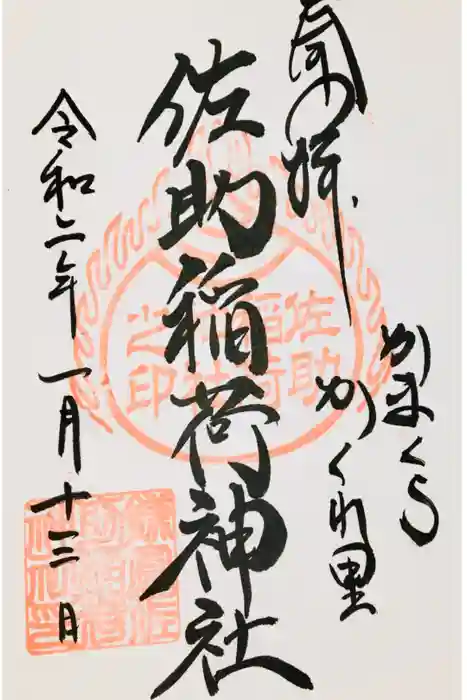 奉拝
かまくら
かくれ里
佐助稲荷神社
令和二年一月十三日
佐助
稲荷
神社
之印